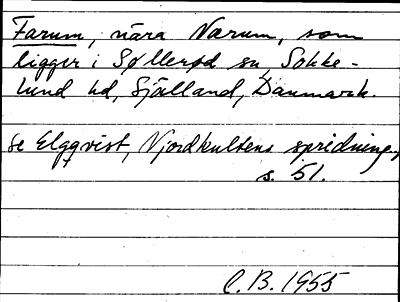 Farum, nära Nærum, som
ligger i Søllerød sn, Sokke-
lund hd, Själland, Danmark.
Se Elgqvist, Njordkultens spridning,
s. 51.
C. B. 1955